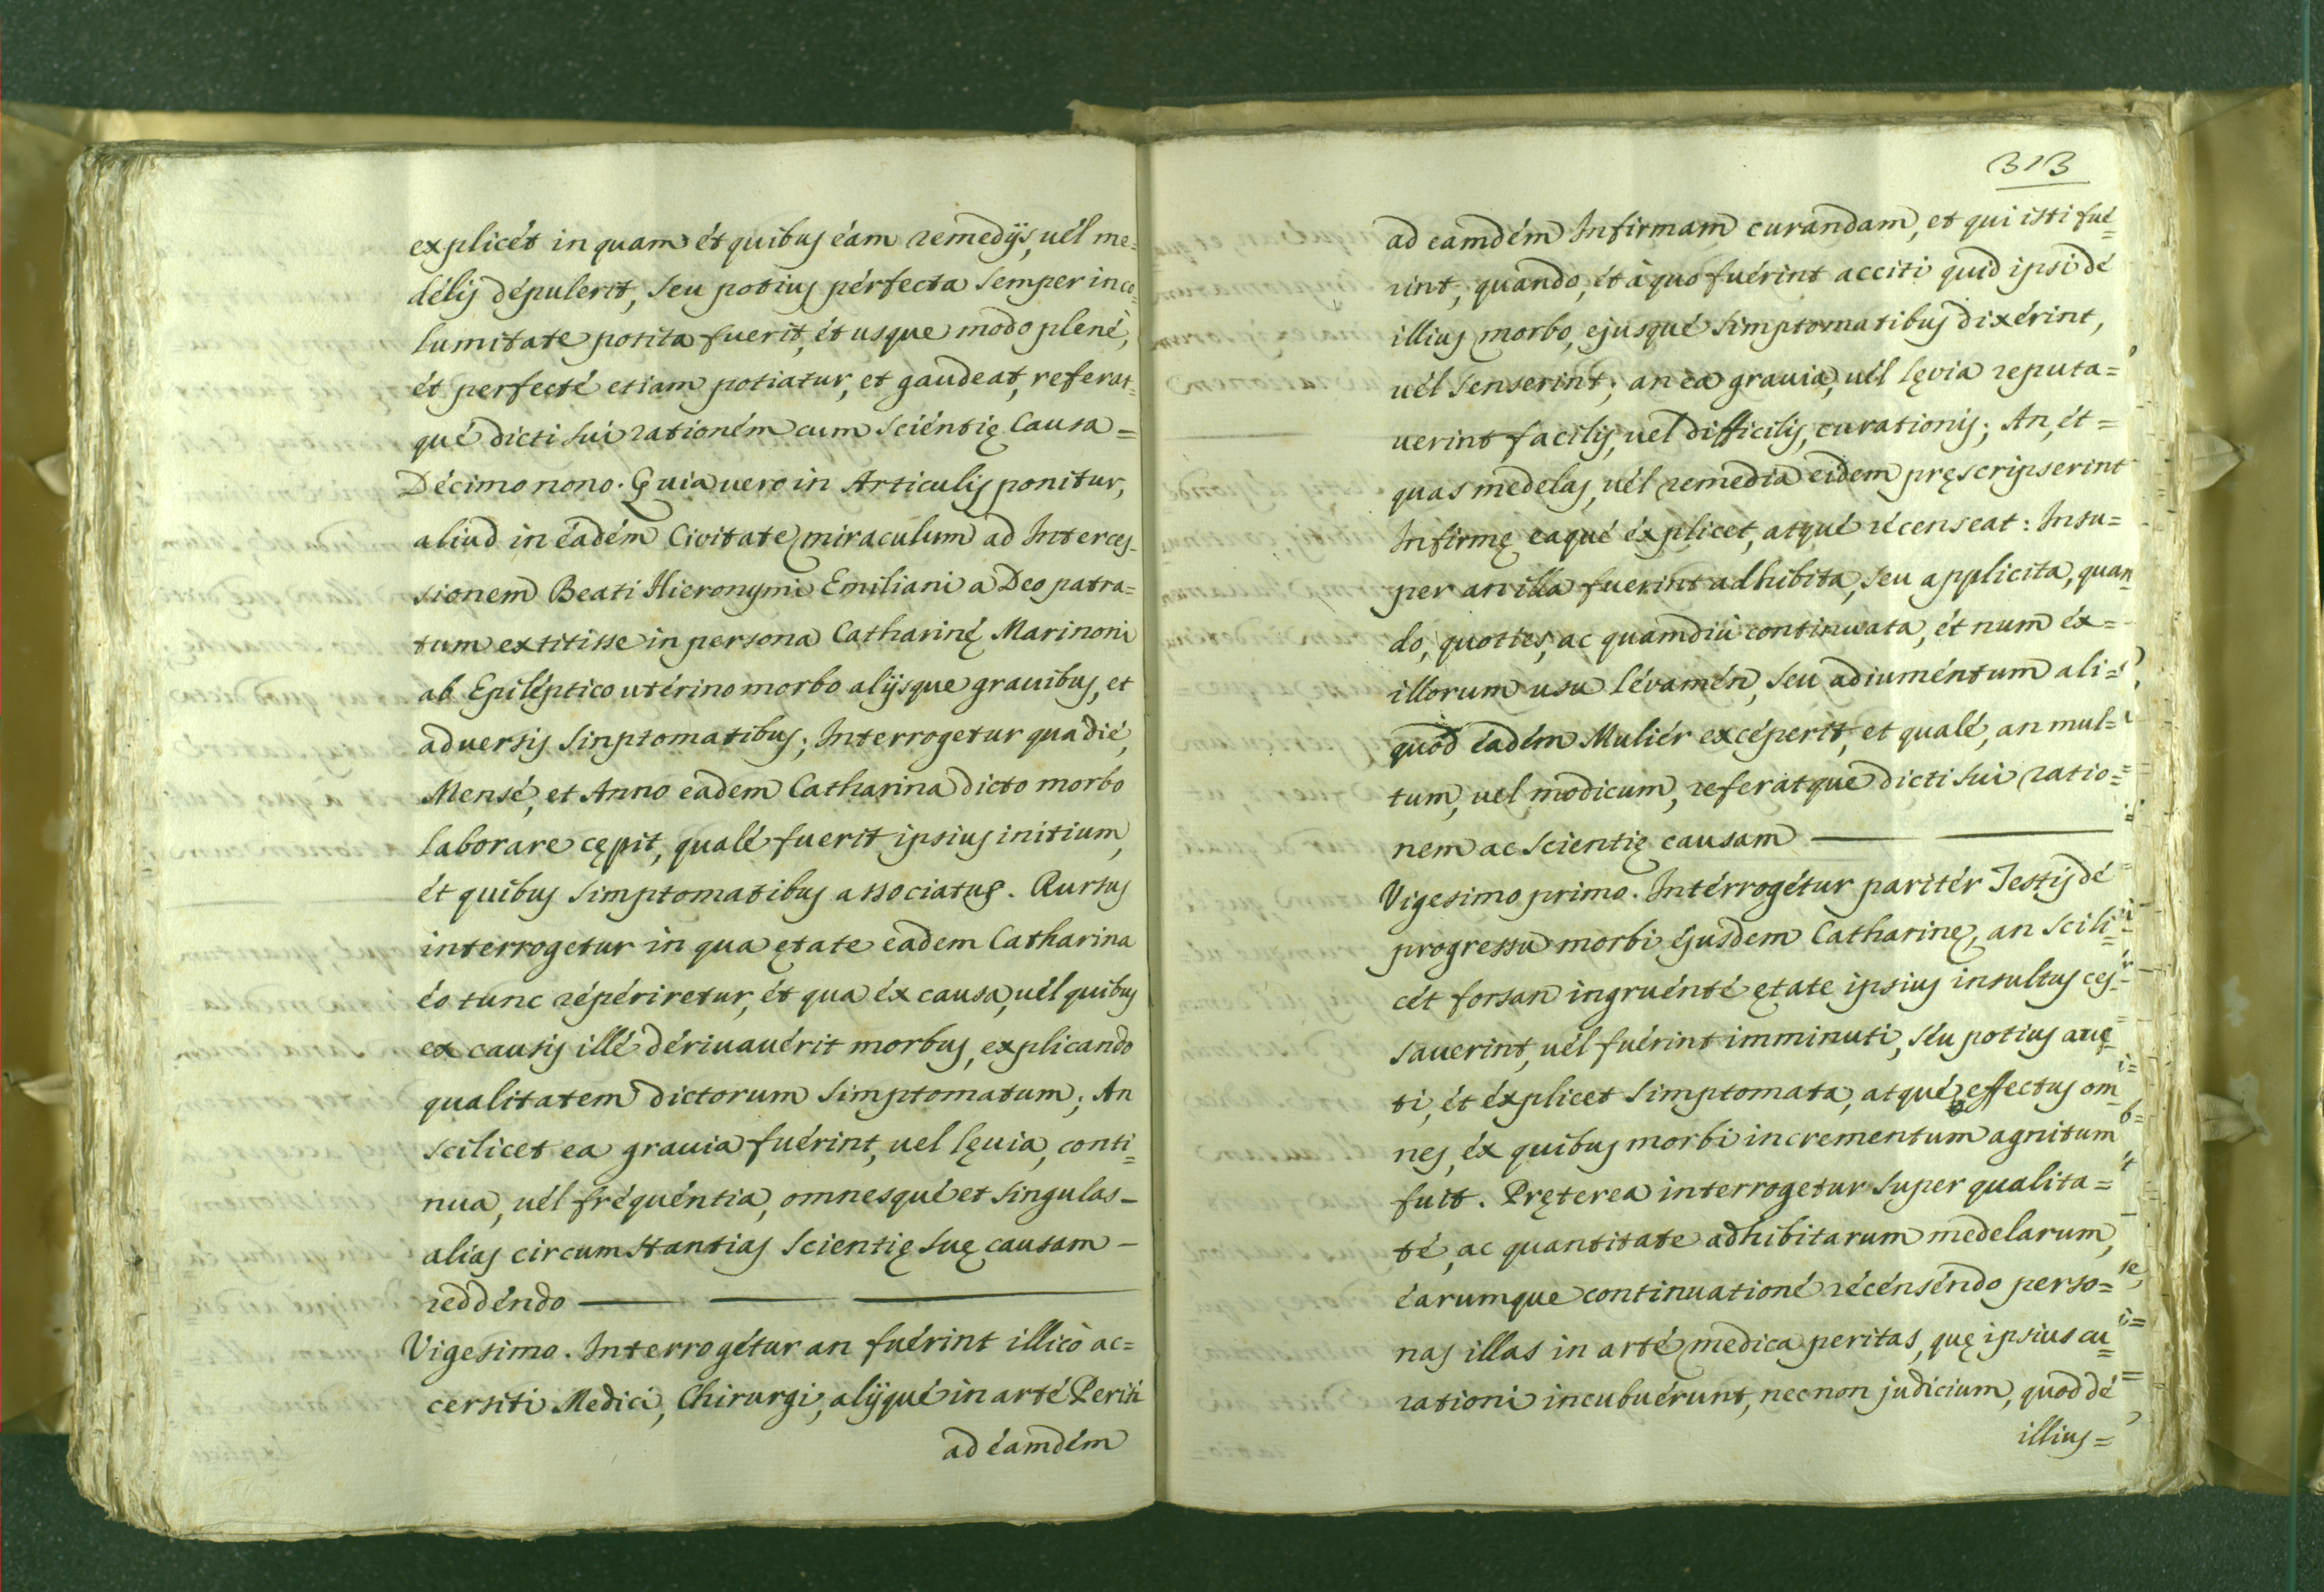 explicét in quam ét quibus éam remedijs, uél me=
délis dépulerit, seu potius pérfecta semper inco=
lumitate potita fuerit, ét usque modo plenè,
ét perfecté etiam potiatur, et gaudeat, referat=
qué dicti sui rationém cum sciéntię Causa =
Décimo nono. Quia uero in Articulis ponitur,
aliud in éadém Civitate miraculum ad Interces=
sionem Beati Hieronymi Emiliani a Deo patra=
tum extitisse in persona Catharinę Marinoni
ab Epiléptico utérino morbo alijsque grauibus, et
aduersis sinptomatibus; Interrogetur qua dié,
Mensé, et Anno eadem Catharina dicto morbo
laborare cępit, qualé fuerit ipsius initium,
ét quibus simptomatibus associatus. Rursus
interrogetur in qua ętate eadem Catharina
éo tunc répériretur, ét qua éx causa, uél quibus
ex causis illé dériuauérit morbus, explicando
qualitatem dictorum simptomatum; An
scilicet ea grauia fuérint, uel lęuia, conti=
nua, uél fréquéntia, omnesqué et singulas -
alias circumstantias scientię suę causam -
reddéndo
Vigesimo. Interrogétur an fuérint illicò ac=
cersiti Medici, Chirurgi, alijqué in arté Periti
ad éamdém
313
ad eamdém Infirmam curandam, et qui isti fué=
rint, quando, ét à quo fuérint acciti quid ipsi dé
illius morbo, ejusqué simptomatibus dixérint,
uél senserint; an ea grauia, uél lęvia reputa=
uerint facilis, uel difficilis, curationis; An, ét =
quas medelas, uél remedia eidem pręscripserint
Infirmę eaqué éxplicet, atqué récenseat: Insu=
per an illa fuerint adhibita, seu applicita, quan=
do, quoties, ac quamdiù continuata, ét num éx=
illorum usu lévamén, seu adiuméntum ali=
quod éadém Muliér excéperit, et qualé, an mul=
tum, uel modicum, referatqué dicti sui ratio=
nem ac scientię causam
Vigesimo primo. Intérrogétur paritér Testis dé
progressu morbi éjusdem Catharinę, an scili=
cét forsan ingruénté ętate ipsius insultus ces=
sauerint, uél fuérint imminuti, séu potius auc=
ti, ét éxplicet simptomata, atqué effectus om=
nes, éx quibus morbi incrementum agnitum
fuit. Pręterea interrogetur super qualita=
té, ac quantitate adhibitarum medelarum,
éarumque continuationé récénséndo perso=
nas illas in arté medica peritas, quę ipsius cu=
rationi incubuérunt, necnon judicium, quod dé
illius=